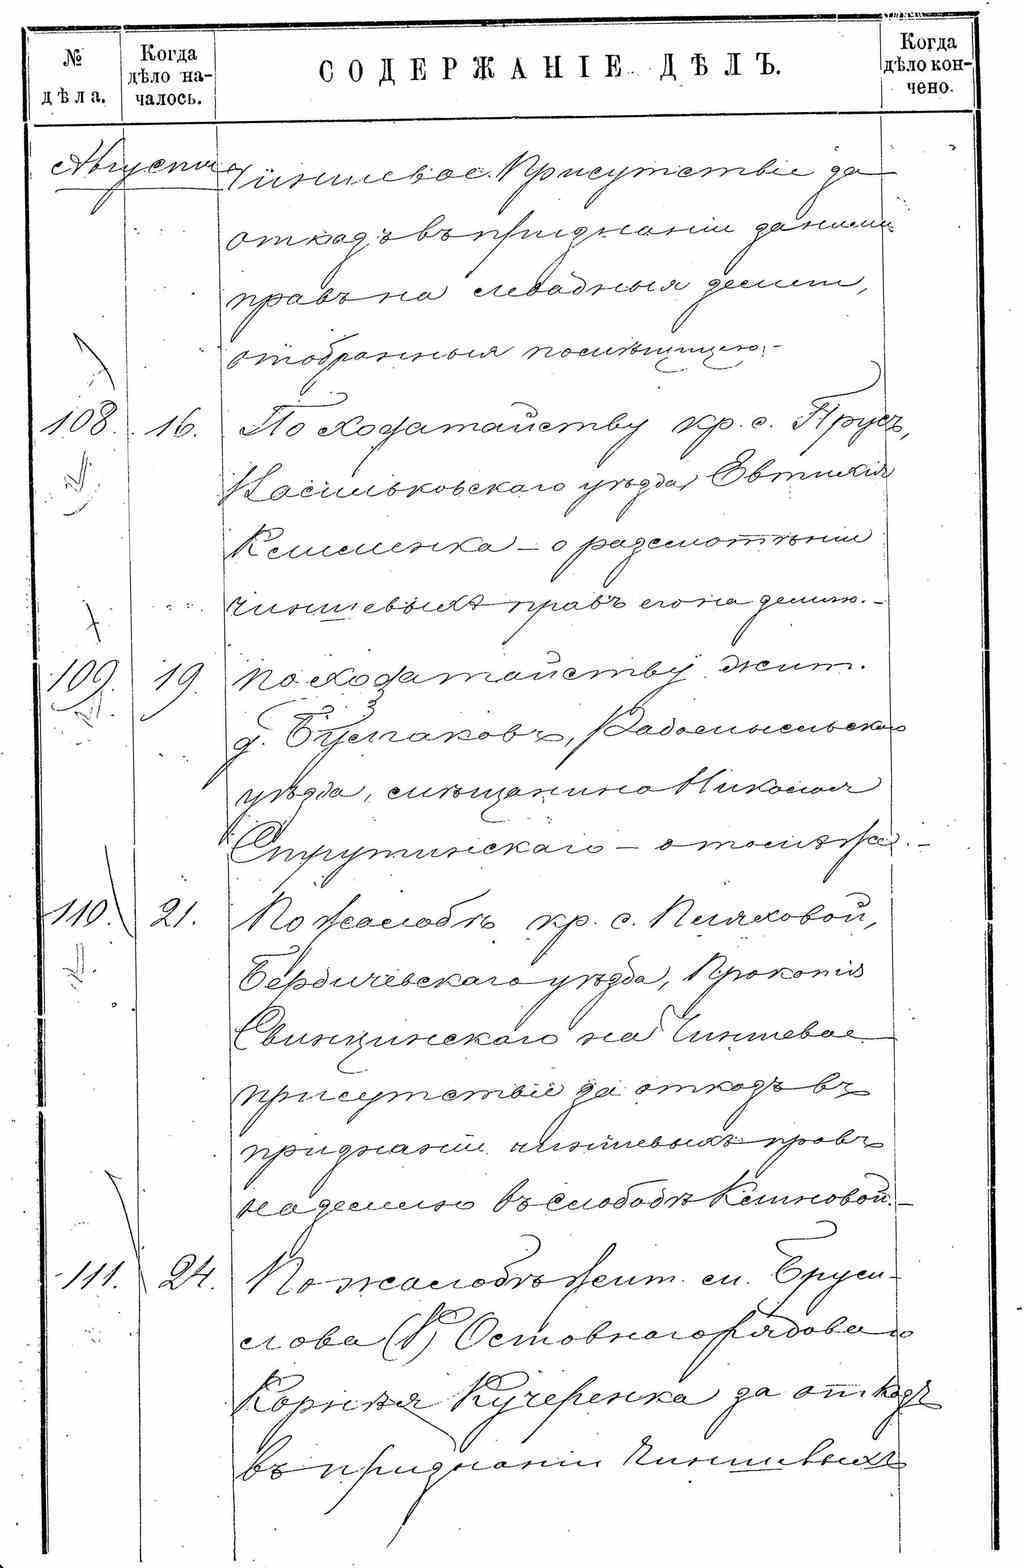 № дѣла.
Когда дѣло началось.
СОДЕРЖАНІЕ ДѢЛЪ.
Когда дѣло кончено.
Августа
Чиншевое Присутствіе за
отказъ въ признаніи за ними
правъ на левадныя земли,
отобранныя помѣщицею.-
108. 16. По ходатайству кр. с. Прусъ,
Васильковскаго уѣзда, Евтихія
Клименка - о разсмотрѣніи
чиншевыхъ правъ его на землю.-
109. 19. По ходатайству жит.
д. Буглаковъ, Радомысльскаго
уѣзда, мѣщанина Николая
Струтинскаго - о томъ же.-
110. 21. По жалобѣ кр. с. Пляховой,
Бердичевскаго уѣзда, Прокопія
Свинцинскаго на Чиншевое
присутствіе за отказъ въ
признаніи чиншевыхъ правъ
на землю въ слободѣ Клиновой.-
111. 24. По жалобѣ жит. м. Бруси-
лова отставнаго рядоваго
Корнѣя Кучеренка за отказъ
въ признаніи Чиншевыхъ